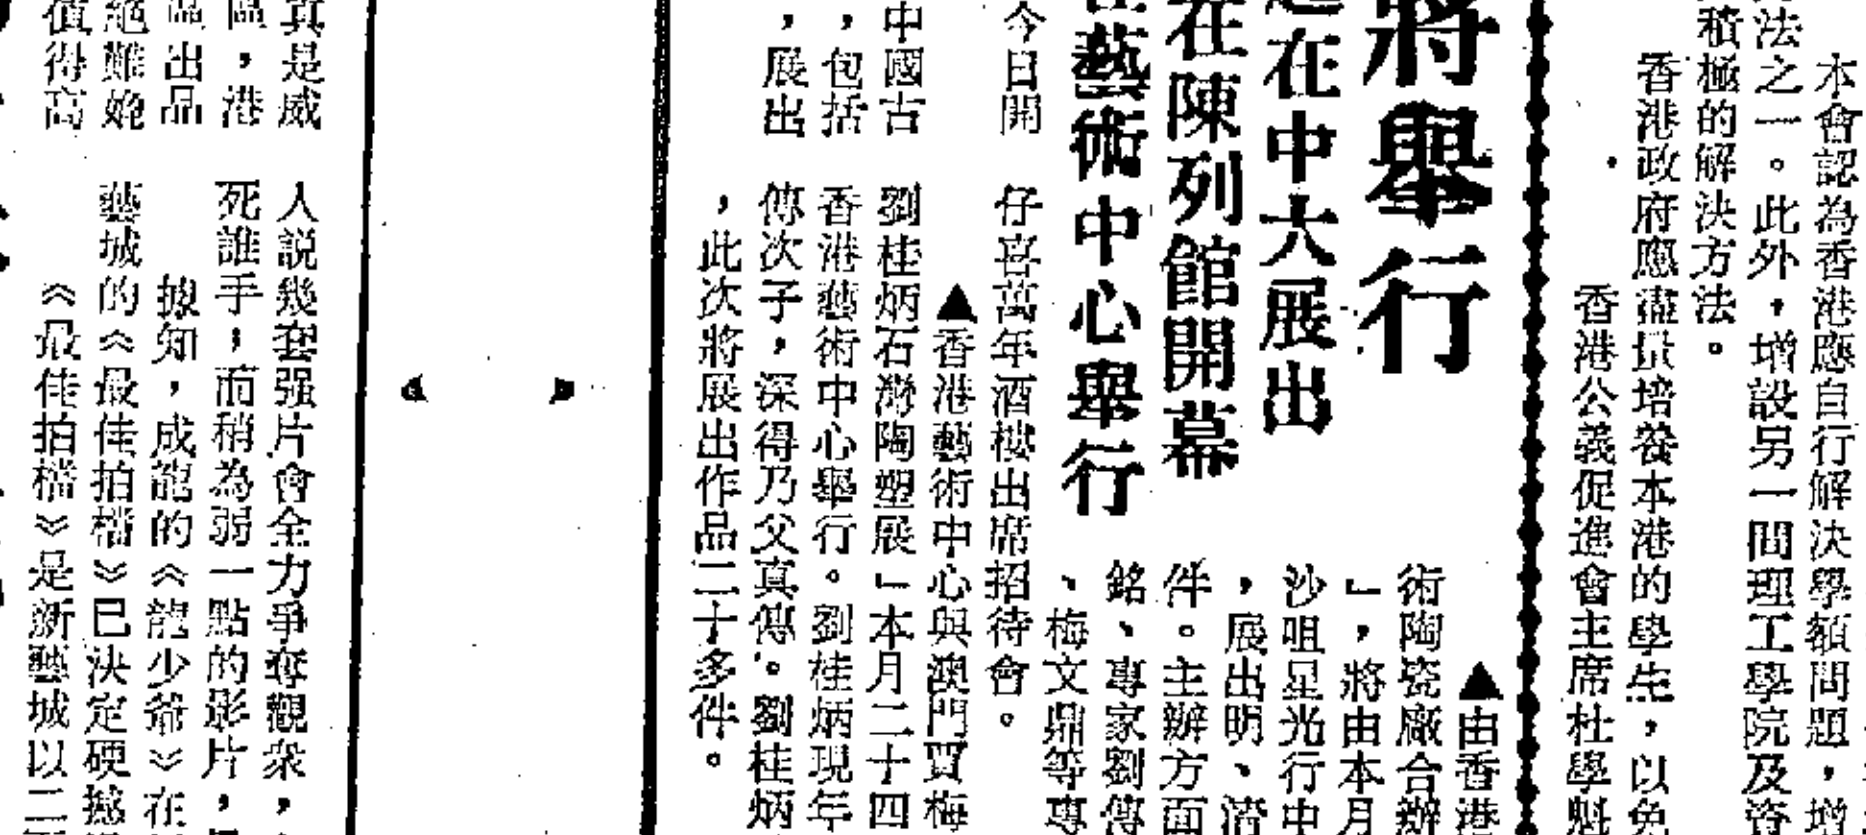 本會認為香港應自行解決學額問題，增
法之一。此外，增設另一間理工學院及資
積極的解決方法。
香港政府應盡量培養本港的學生，以免
香港公義促進會主席杜學魁
將舉行
在中大展出
在陳列館開幕
藝術中心舉行
▲由香港
術陶瓷廠合辦
」，將由本月
沙咀星光行中
，展出明、清
件。主辦方面
銘、專家劉傳
、梅文鼎等專
今日開
仔喜萬年酒樓出席招待會。
▲香港藝術中心與澳門賈梅
劉桂炳石灣陶塑展」本月二十四
香港藝術中心舉行。劉桂炳現年
傳次子，深得乃父真傳。劉桂炳
，此次將展出作品二十多件。
中國古
，包括
，展出
真是威
區，港
區出品
絕難娩
值得高
人説幾套强片會全力爭奪觀衆，
死誰手，而稍為弱一點的影片，
據知，成龍的《龍少爺》在
藝城的《最佳拍檔》已決定硬撼
《最佳拍檔》是新藝城以二